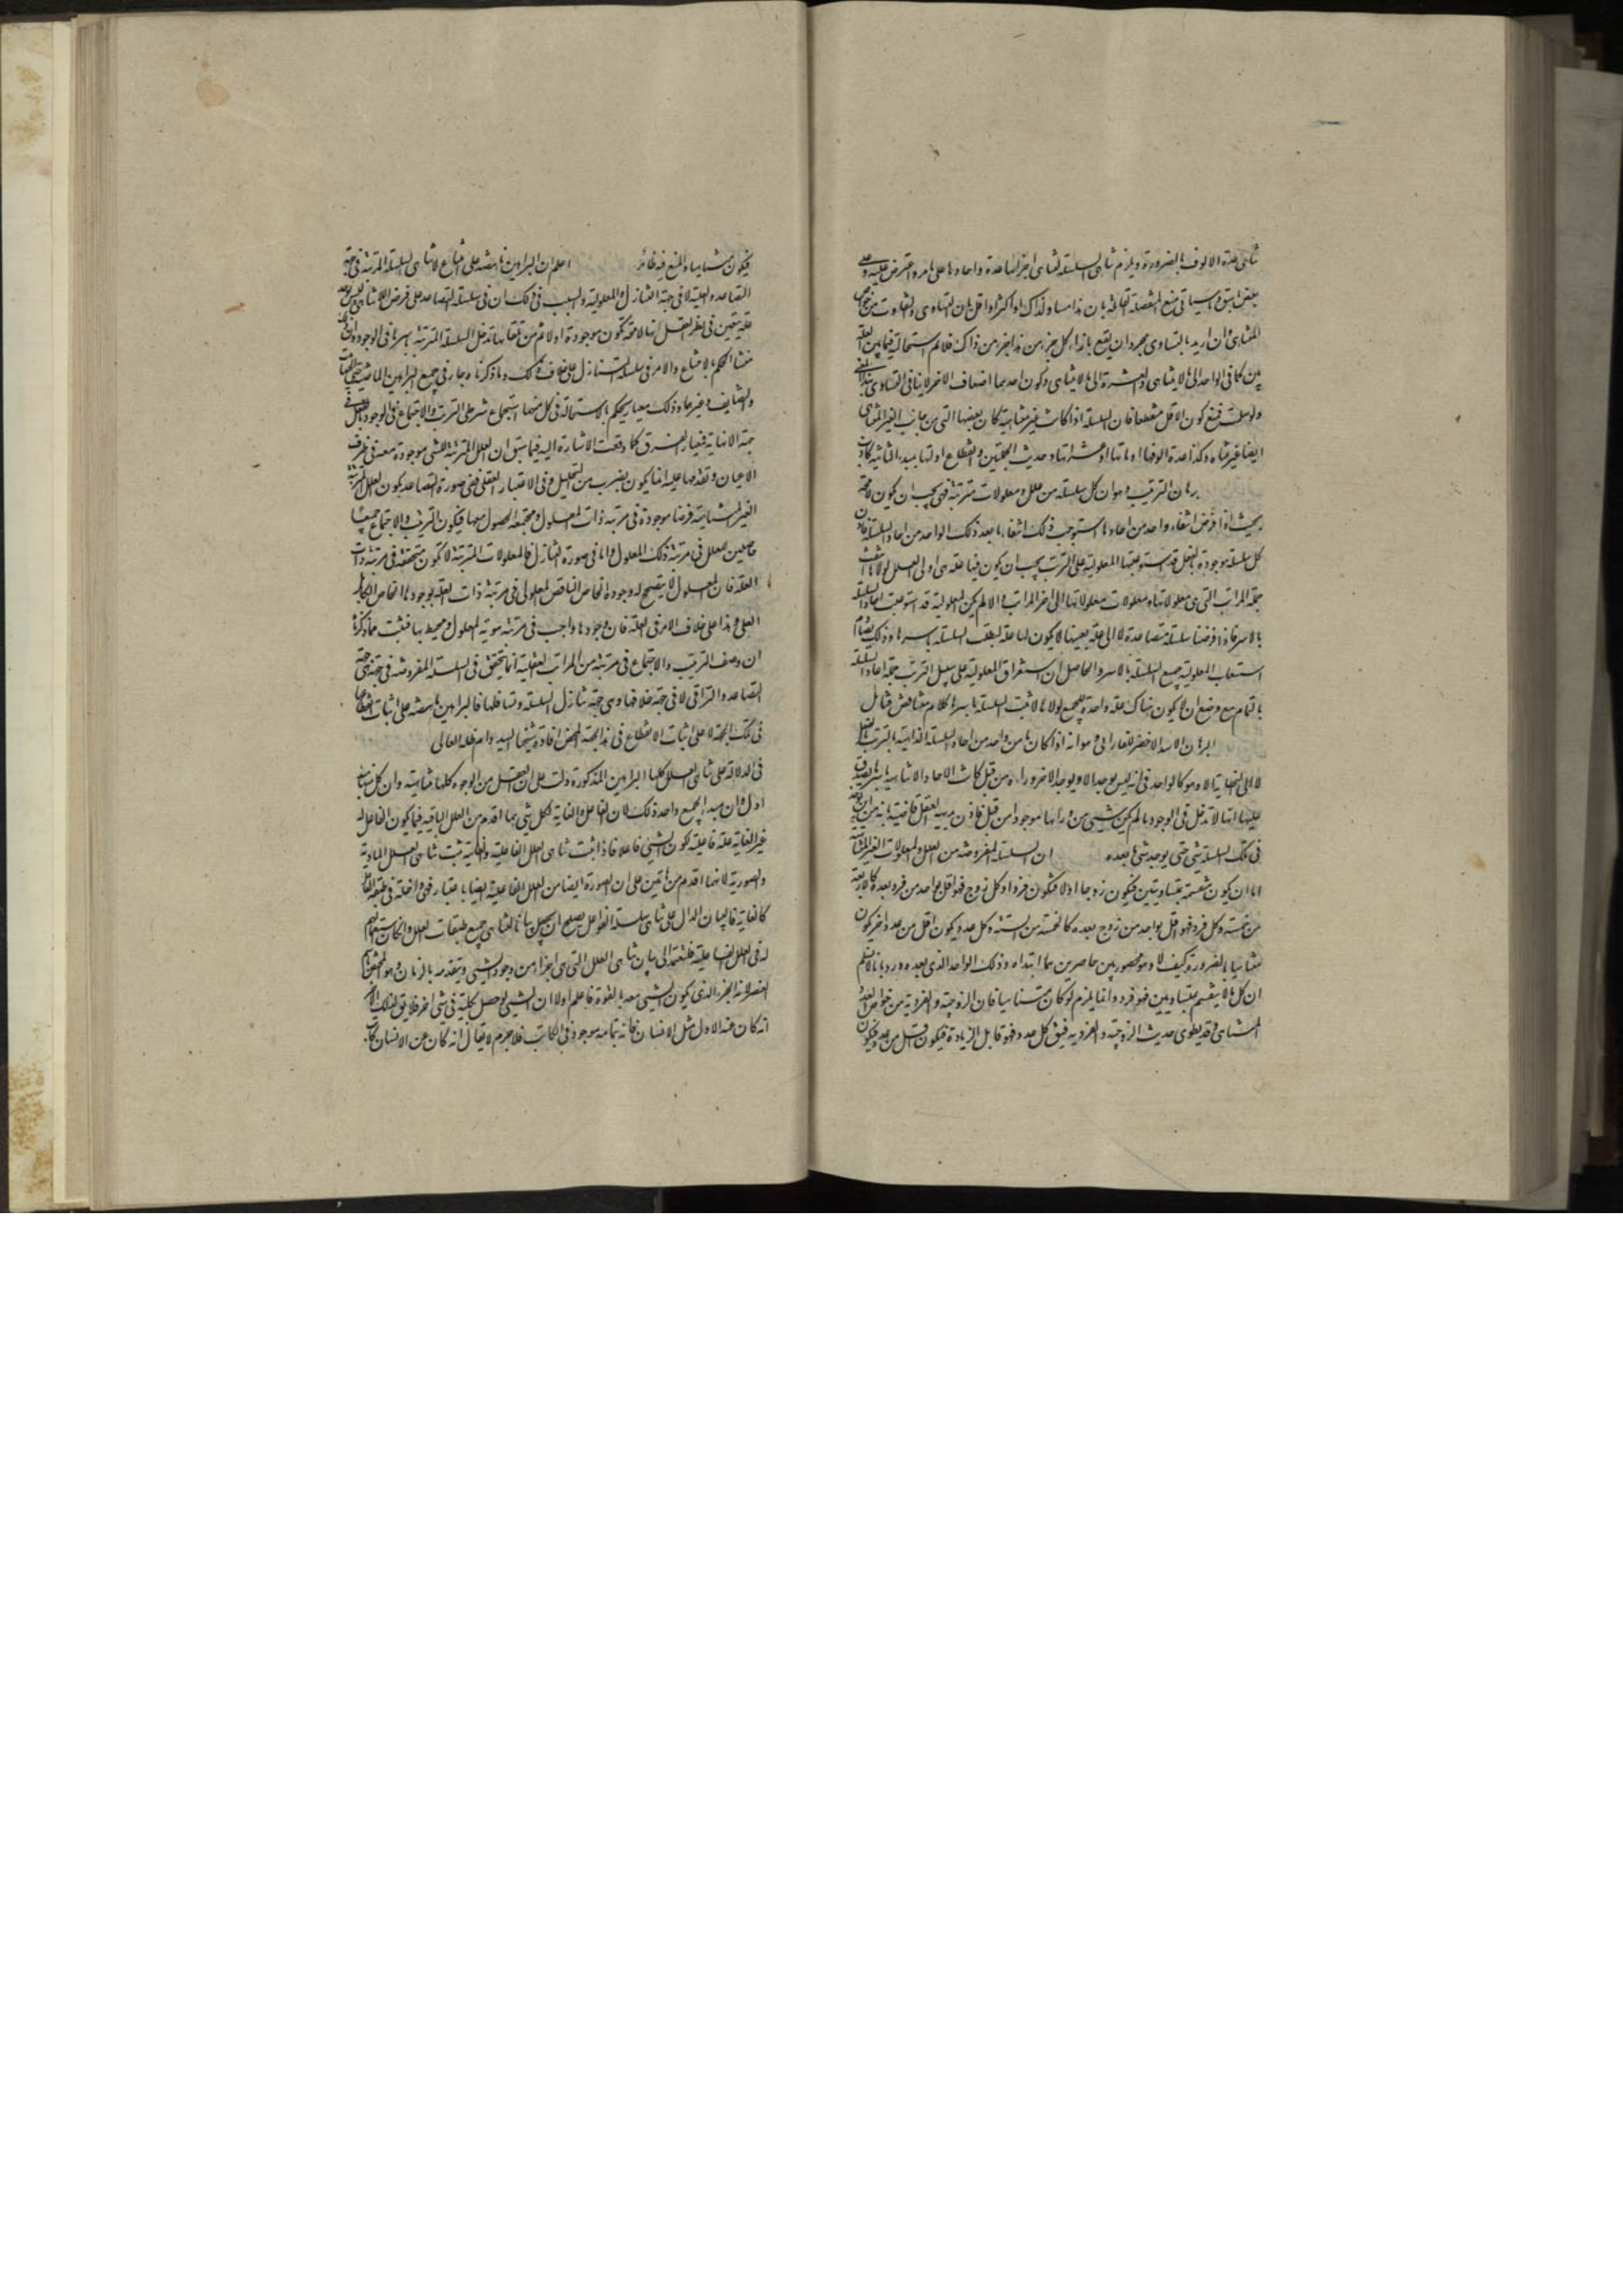 تناهى عدة الالوف بالضرورة ويلزم تناهى السلسلة لتناهى اجزائها عدة واحادها على ما مر واعترض عليه
بعض ما سبق وسياتى منع المنفصلة القائلة بان هذا مساو لذاك او اكثر او اقل فان التساوى والتفاوت من خواص
المتناهى وان اريد بالتساوى مجرد ان يقع بازاء كل جزء من هذا جزء من ذاك فلا نم استحالته فيما بين العدتين
كما فى الواحد الى ما لا يتناهى والعشرة الى ما لا يتناهى وكون احدهما اضعاف الاخر لا ينافى التساوى بهذا المعنى
ولو سلمت فنمنع كون الاقل منقطعا فان السلسلة اذا كانت غير متناهية كان بعضها التى من جانب الغير المتناهى
ايضا غير متناه وكذا عدة الوفها او مآتها او عشراتها وحديث الجملتين وانقطاع اولهما بمبدء الثانية كاذب
برهان الترتب وهو ان كل سلسلة من علل ومعلولات مترتبة فهى يجب ان يكون لا محة
بحيث اذا فرض انتفاء واحد من احادها استوجب ذلك انتفاء ما بعد ذلك الواحد من احاد السلسلة فاذن
كل سلسلة موجودة بالفعل قد استوعبتها المعلولية على الترتب يجب ان يكون فيها علة هى اولى العلل لولاها انتفت
جملة المراتب التى هى معلولاتها ومعلولات معلولاتها الى اخر المراتب والا لم يكن المعلولية قد استوعبت احاد السلسلة
بالاسر فاذا فرضنا سلسلة متصاعدة لا الى علة بعينها لا يكون لها علة لبطلت السلسلة باسرها وذلك يصادم
استيعاب المعلولية جميع السلسلة بالاسر والحاصل ان استغراق المعلولية على سبيل الترتب جملة احاد السلسلة
بالتمام مع وضع ان لا يكون هناك علة واحدة للجميع لولاها لانتفت السلسلة باسرها كلام متناقض فتامل
البرهان الاسد الاخصر للفارابى وهو انه اذا كان ما من واحد من احاد السلسلة الذاهبة بالترتب بالفعل
لا الى النهاية الا وهو كالواحد فى انه ليس يوجد الا ويوجد الاخر وراءه من قبل كانت الاحاد اللامتناهية باسرها يصدق
عليها انها لا تدخل فى الوجود ما لم يكن شىء من ورائها موجودا من قبل فاذن بديهة العقل قاضية بانه من اين يوجد
فى تلك السلسلة شىء حتى يوجد شىء ما بعده ان السلسلة المفروضة من العلل والمعلولات الغير المتناهية
اما ان يكون منقسمة بمتساويتين فيكون زوجا او لا فيكون فردا وكل زوج فهو اقل بواحد من فرد بعده كالاربعة
من خمسة وكل فرد فهو اقل بواحد من زوج بعده كالخمسة من الستة وكل عدد يكون اقل من عدد اخر يكون
متناهيا بالضرورة كيف لا وهو محصور بين حاصرين هما ابتداه وذلك الواحد الذى بعده ورد بانا لا نسلم
ان كل ما لا ينقسم بمتساويين فهو فرد وانما يلزم لو كان متناهيا فان الزوجية والفردية من خواص العدد
المتناهى وقد يطوى حديث الزوجية والفردية فيق كل عدد فهو قابل الزيادة فيكون اقل من عدد فيكون
فيكون متناهيا والمنع فيه ظاهر اعلم ان البراهين ناهضة على امتناع لا تناهى السلسلة المترتبة فى جهة
التصاعد والعلية لا فى جهة التنازل والمعلولية والسبب فى ذلك ان فى سلسلة التصاعد على فرض اللاتناهى ليس يوجد
علة يتعين فى نظر العقل انها لا محة تكون موجودة اولا ثم من تلقائها تدخل السلسلة المترتبة باسرها فى الوجود
منشا الحكم بالامتناع والامر فى سلسلة التنازل على خلاف ذلك وما ذكرناه جار فى جميع البراهين الماضية حتى الحيثيات
والتضايف وغيرهما وذلك معيار يحكم بالاستحالة فى كل منهما استجماع شرطى الترتب والاجتماع فى الوجود بالفعل فى
جهة اللانهاية فمعيار الفرق كما وقعت الاشارة اليه فيما سبق ان العلل المترتبة للشىء موجودة معه فى ظرف
الاعيان وتقدمها عليه انما يكون بضرب من التحليل وفى الاعتبار العقلى ففى صورة التصاعد يكون العلل المترتبة
الغير المتناهية فرضا موجودة فى مرتبة ذات المعلول ومجتمعة الحصول معها فيكون الترتب والاجتماع جميعا
حاصلين للعلل فى مرتبة ذلك المعلول واما فى صورة التنازل فالمعلولات المترتبة لا تكون متحققة فى مرتبة ذات
العلة فان المعلول لا يتصحح له وجوده الخاص الناقص المعلولى فى مرتبة ذات العلة بوجودها الخاص الكامل
العلى وهذا على خلاف الامر فى العلة فان وجودها واجب فى مرتبة هوية المعلول ومحيط بها فثبت مما ذكرنا
ان وصف الترتب والاجتماع فى مرتبة من المراتب العقلية انما يتحقق فى السلسلة المفروضة فى جهتى جهة
التصاعد والتراقى لا فى جهة خلافها وهى جهة تنازل السلسلة وتسافلها فالبراهين ناهضة على اثبات انقطاعها
فى تلك الجهة لا على اثبات الانقطاع فى هذه الجهة المحض افاده شيخنا السيد دام ظله العالى
فى الدلالة على تناهى العلل كلها البراهين المذكورة دلت على ان العلل من الوجوه كلها متناهية وان فى كل منها مبدا
اول وان مبدا الجميع واحد وذلك لان الفاعل والغاية لكل شىء هما اقدم من العلل الباقية فيما يكون الفاعل له
غير الغاية علة فاعلية لكون الشىء فاعلا فاذا ثبت تناهى العلل الفاعلية والغائية ثبت تناهى العلل المادية
والصورية لانهما اقدم من هاتين على ان الصورة ايضا من العلل الفاعلية ايضا باعتبار فهى داخلة فى طبقة الفاعل
كالغاية فالبيان الدال على تناهى سلسلة الفواعل يصلح ان يجعل بيانا لتناهى جميع طبقات العلل وان كان استعمالهم
له فى العلل الفاعلية فلنعمد الى بيان تناهى العلل التى هى اجزاء من وجود الشىء ويتقدمه بالزمان وهو المختص باسم
العنصر لانه الجزء الذى يكون الشىء معه بالقوة فاعلم اولا ان الشىء لو حصل بكليته فى شىء اخر فلا يق لذلك الاخر
انه كان عنه الاول مثل الانسان فانه بتمامه موجود فى الكاتب فلا جرم لا يقال انه كان عن الانسان كاتب